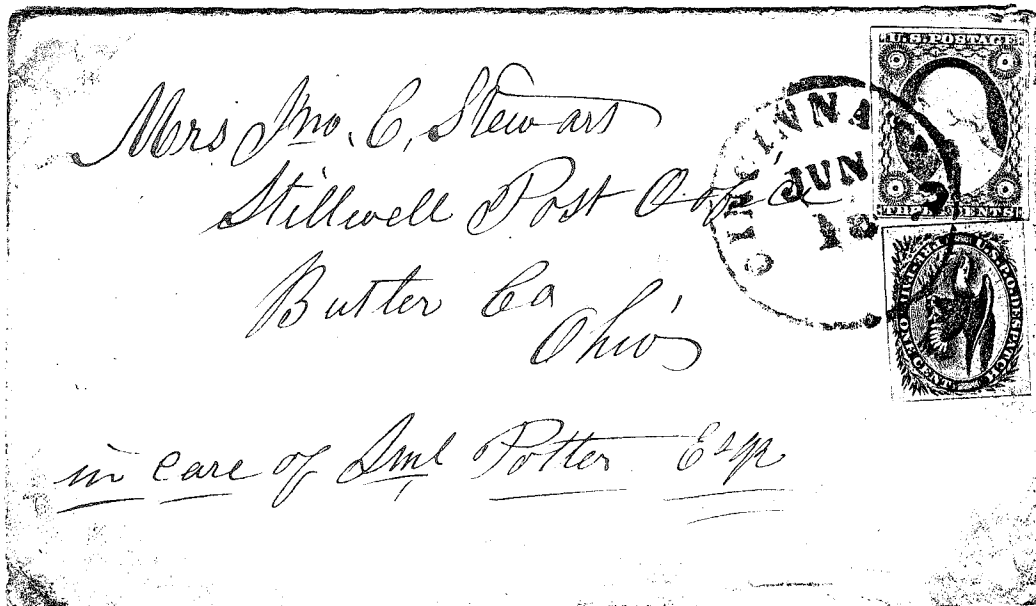 Mrs Jno. C. Stewart
Stillwell Post Office
Butler Co
Ohio
in care of Saml Potter Esqr
CINCINNATI
JUN
18
U.S. POSTAGE
THREE CENTS
U.S.P.O. DESPATCH
PRE-PAID
ONE CENT